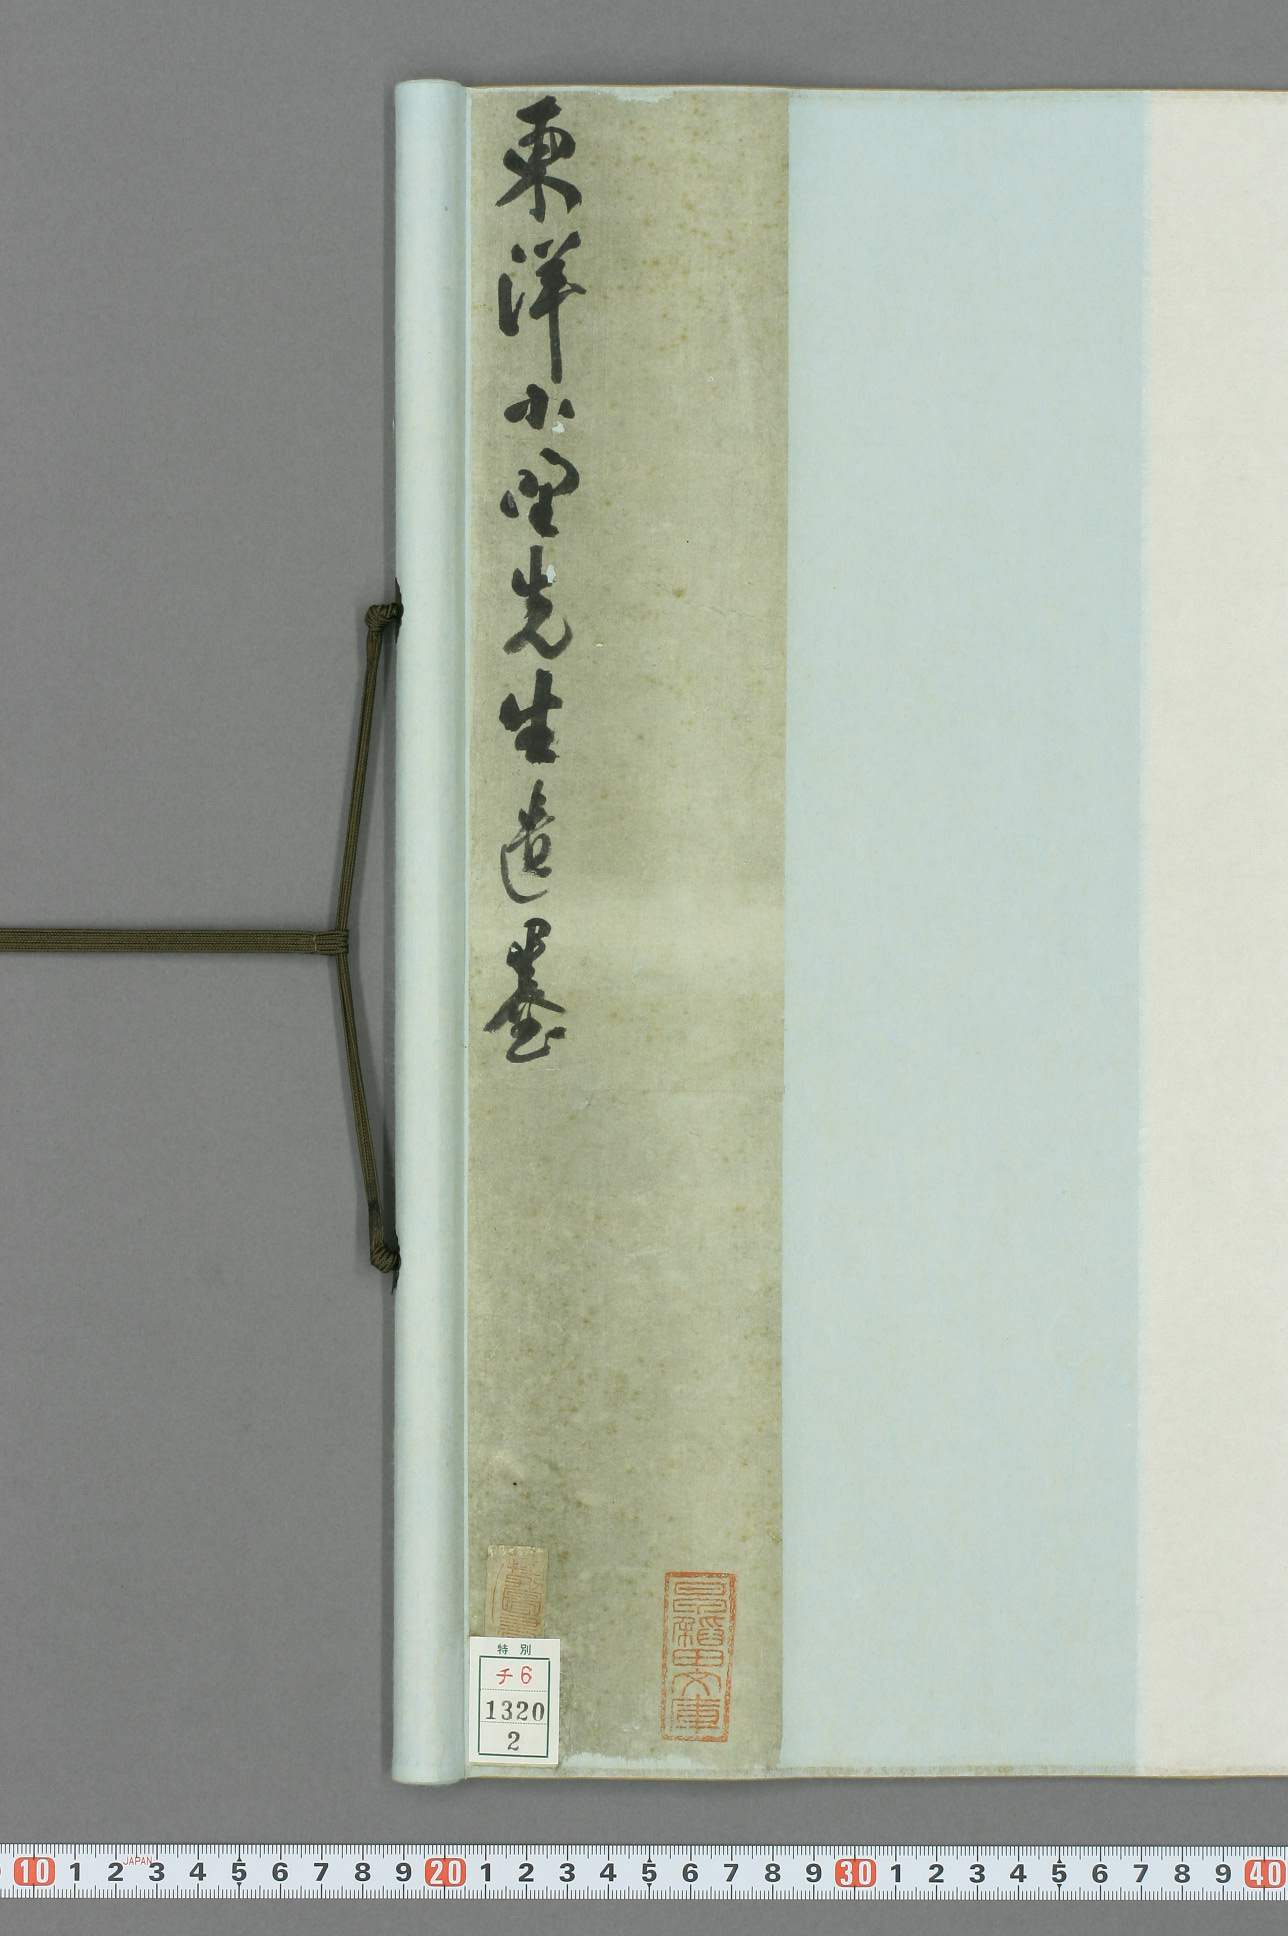 東洋小野先生遺墨
昌緒田文庫
特別
チ6
1320
2
10 1 2 3 4 5 6 7 8 9 20 1 2 3 4 5 6 7 8 9 30 1 2 3 4 5 6 7 8 9 40
JAPAN